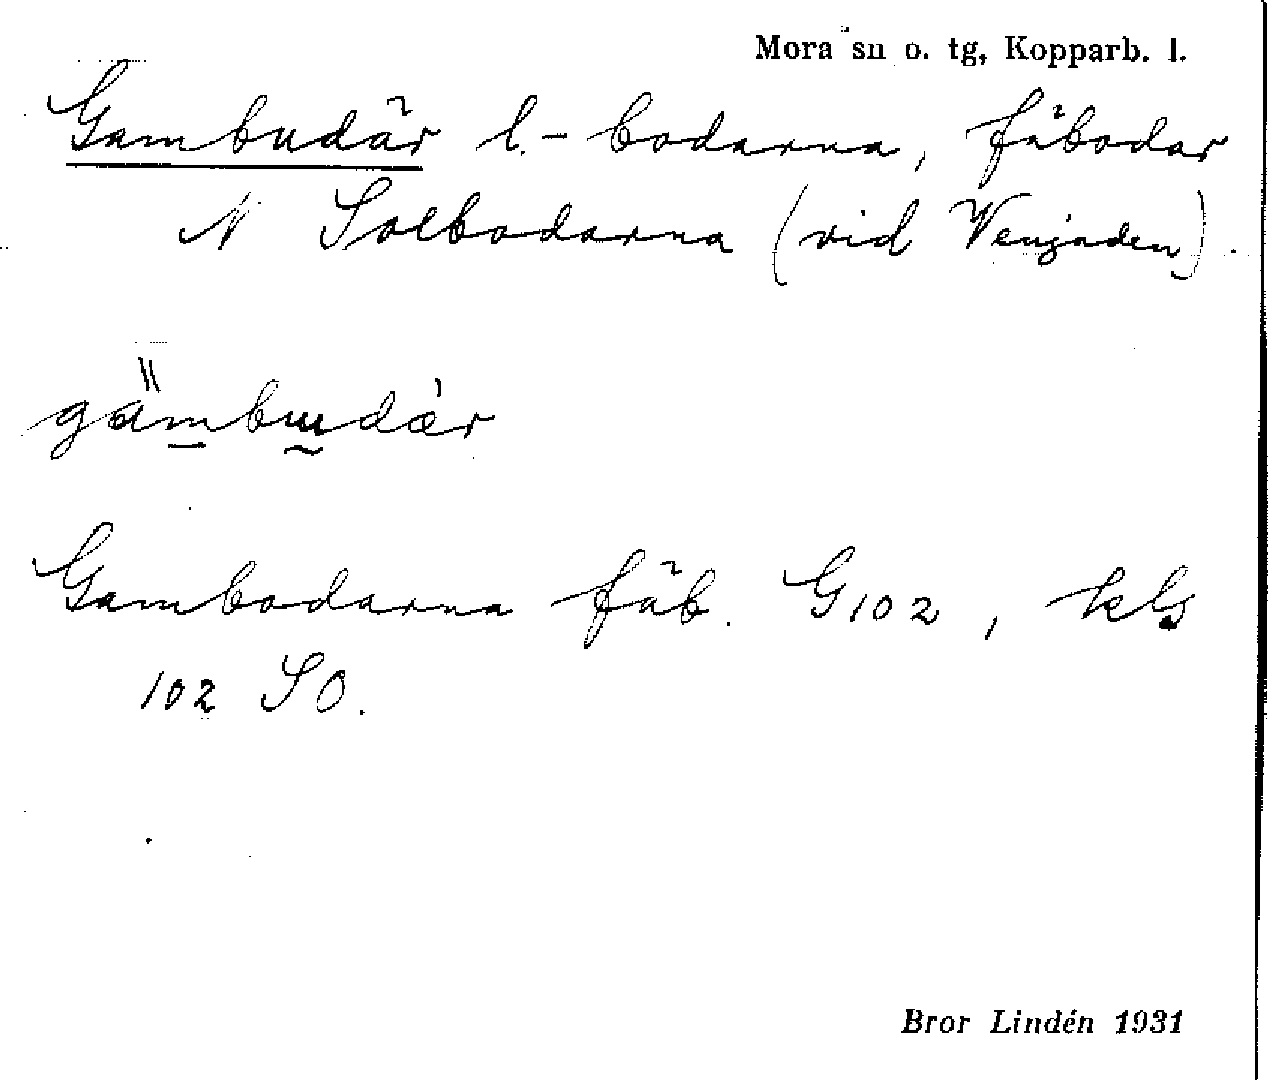 Mora sn o. tg, Kopparb. l.
Gambudär l. -bodarna, fäbodar
N Solbodarna (vid Venjaden).
gämbɯdær
Gambodarna fäb. G102, kls
102 SO.
Bror Lindén 1931